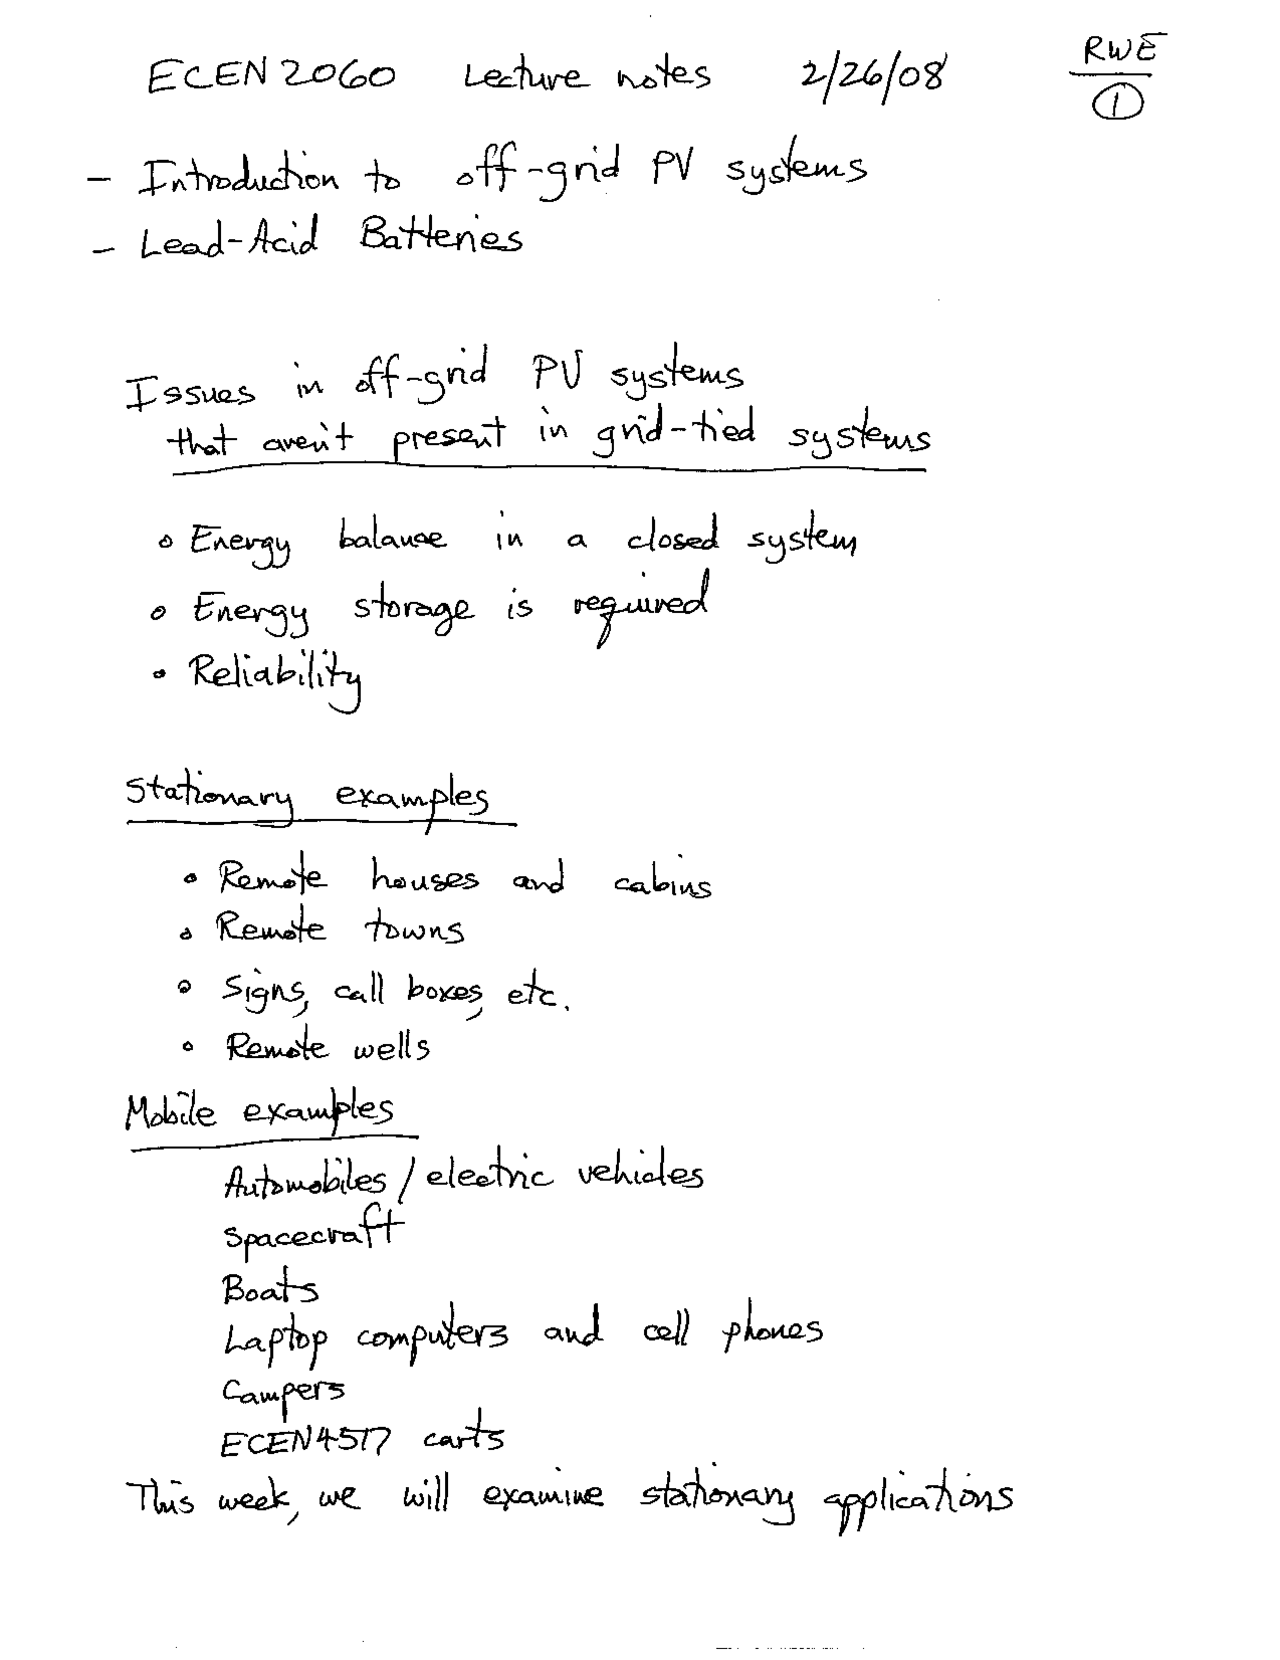 ECEN 2060 Lecture notes 2/26/08 RWE
1
- Introduction to off-grid PV systems
- Lead-Acid Batteries
Issues in off-grid PV systems
that aren't present in grid-tied systems
• Energy balance in a closed system
• Energy storage is required
• Reliability
Stationary examples
• Remote houses and cabins
• Remote towns
• Signs, call boxes, etc.
• Remote wells
Mobile examples
Automobiles / electric vehicles
Spacecraft
Boats
Laptop computers and cell phones
Campers
ECEN4517 carts
This week, we will examine stationary applications